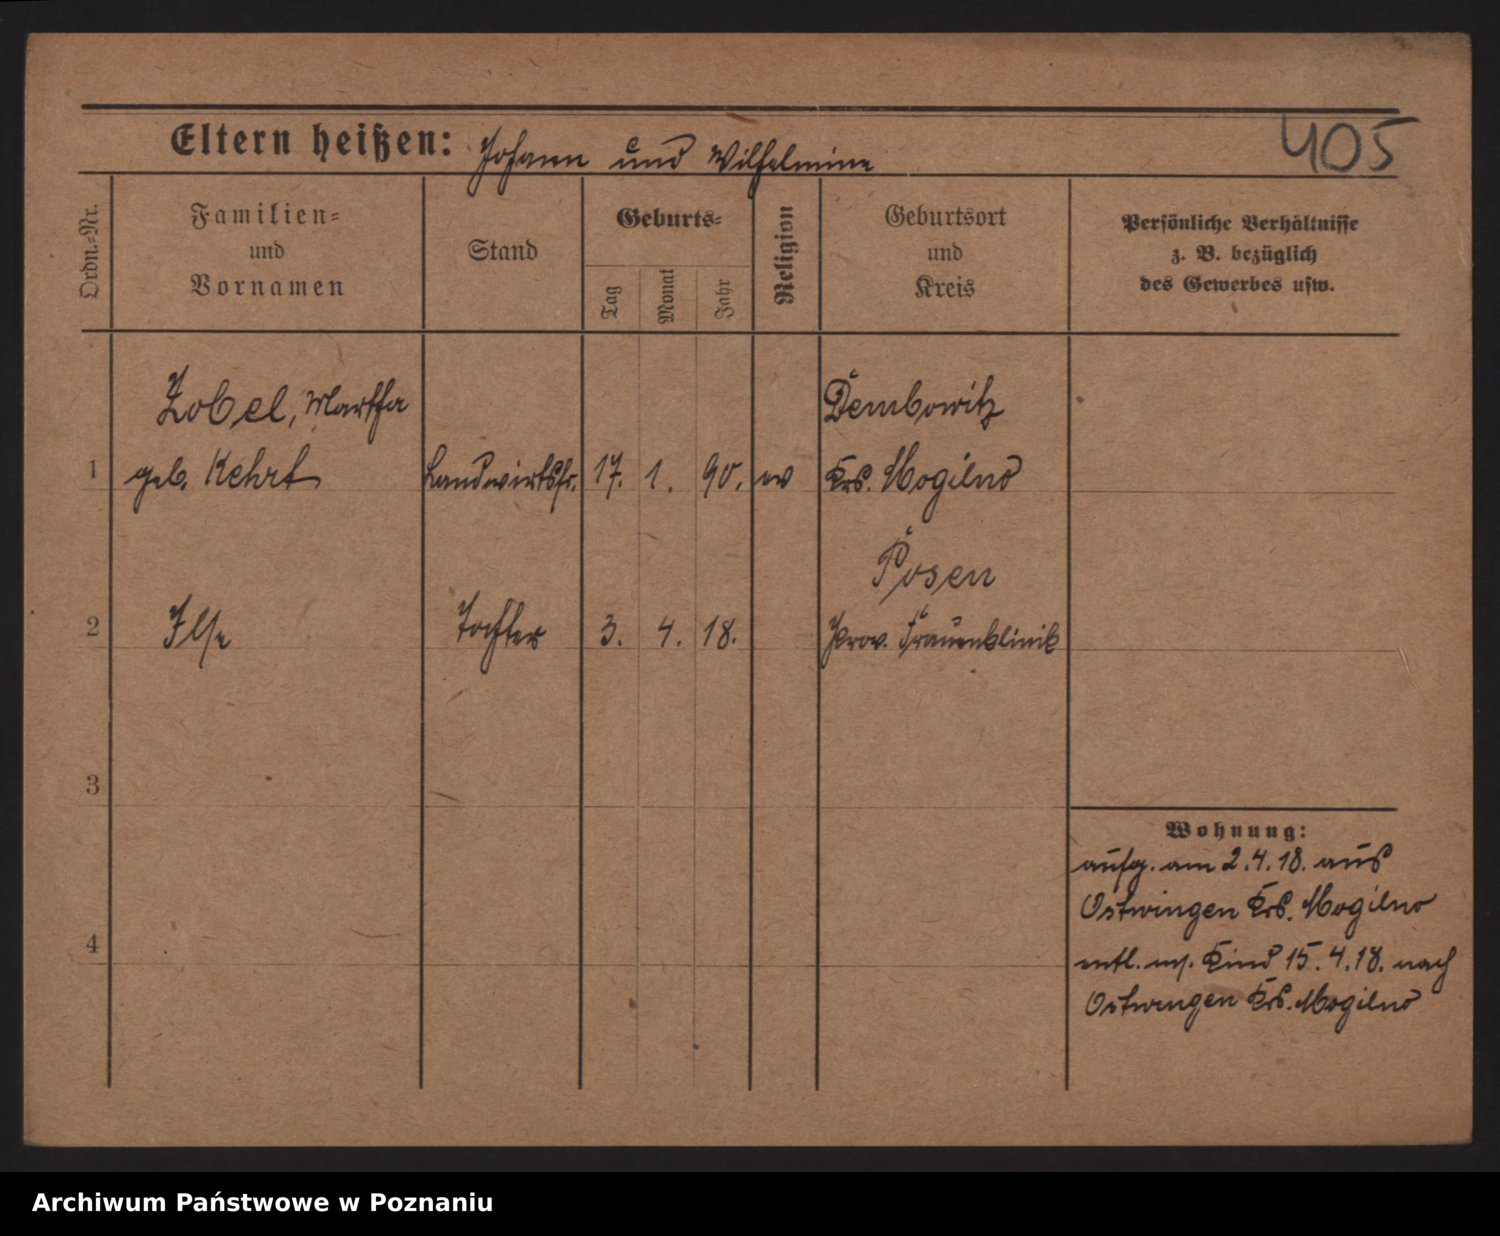 Eltern heißen: Johann und Wilhelmine
405
Ordn.=Nr.
Familien=
und
Vornamen
Stand
Geburts=
Tag
Monat
Jahr
Religion
Geburtsort
und
Kreis
Persönliche Verhältnisse
z. B. bezüglich
des Gewerbes usw.
Zobel, Martha
Dembowitz
1 geb. Kehrt Landwirtsfr. 17. 1. 90. ev Krs. Mogilno
Posen
2 Ilse Tochter 3. 4. 18. Prov. Frauenklinik
3
Wohnung:
aufg. am 2.4.18. aus
Ostwingen Krs. Mogilno
4
entl. m. Kind 15.4.18. nach
Ostwingen Krs. Mogilno
Archiwum Państwowe w Poznaniu